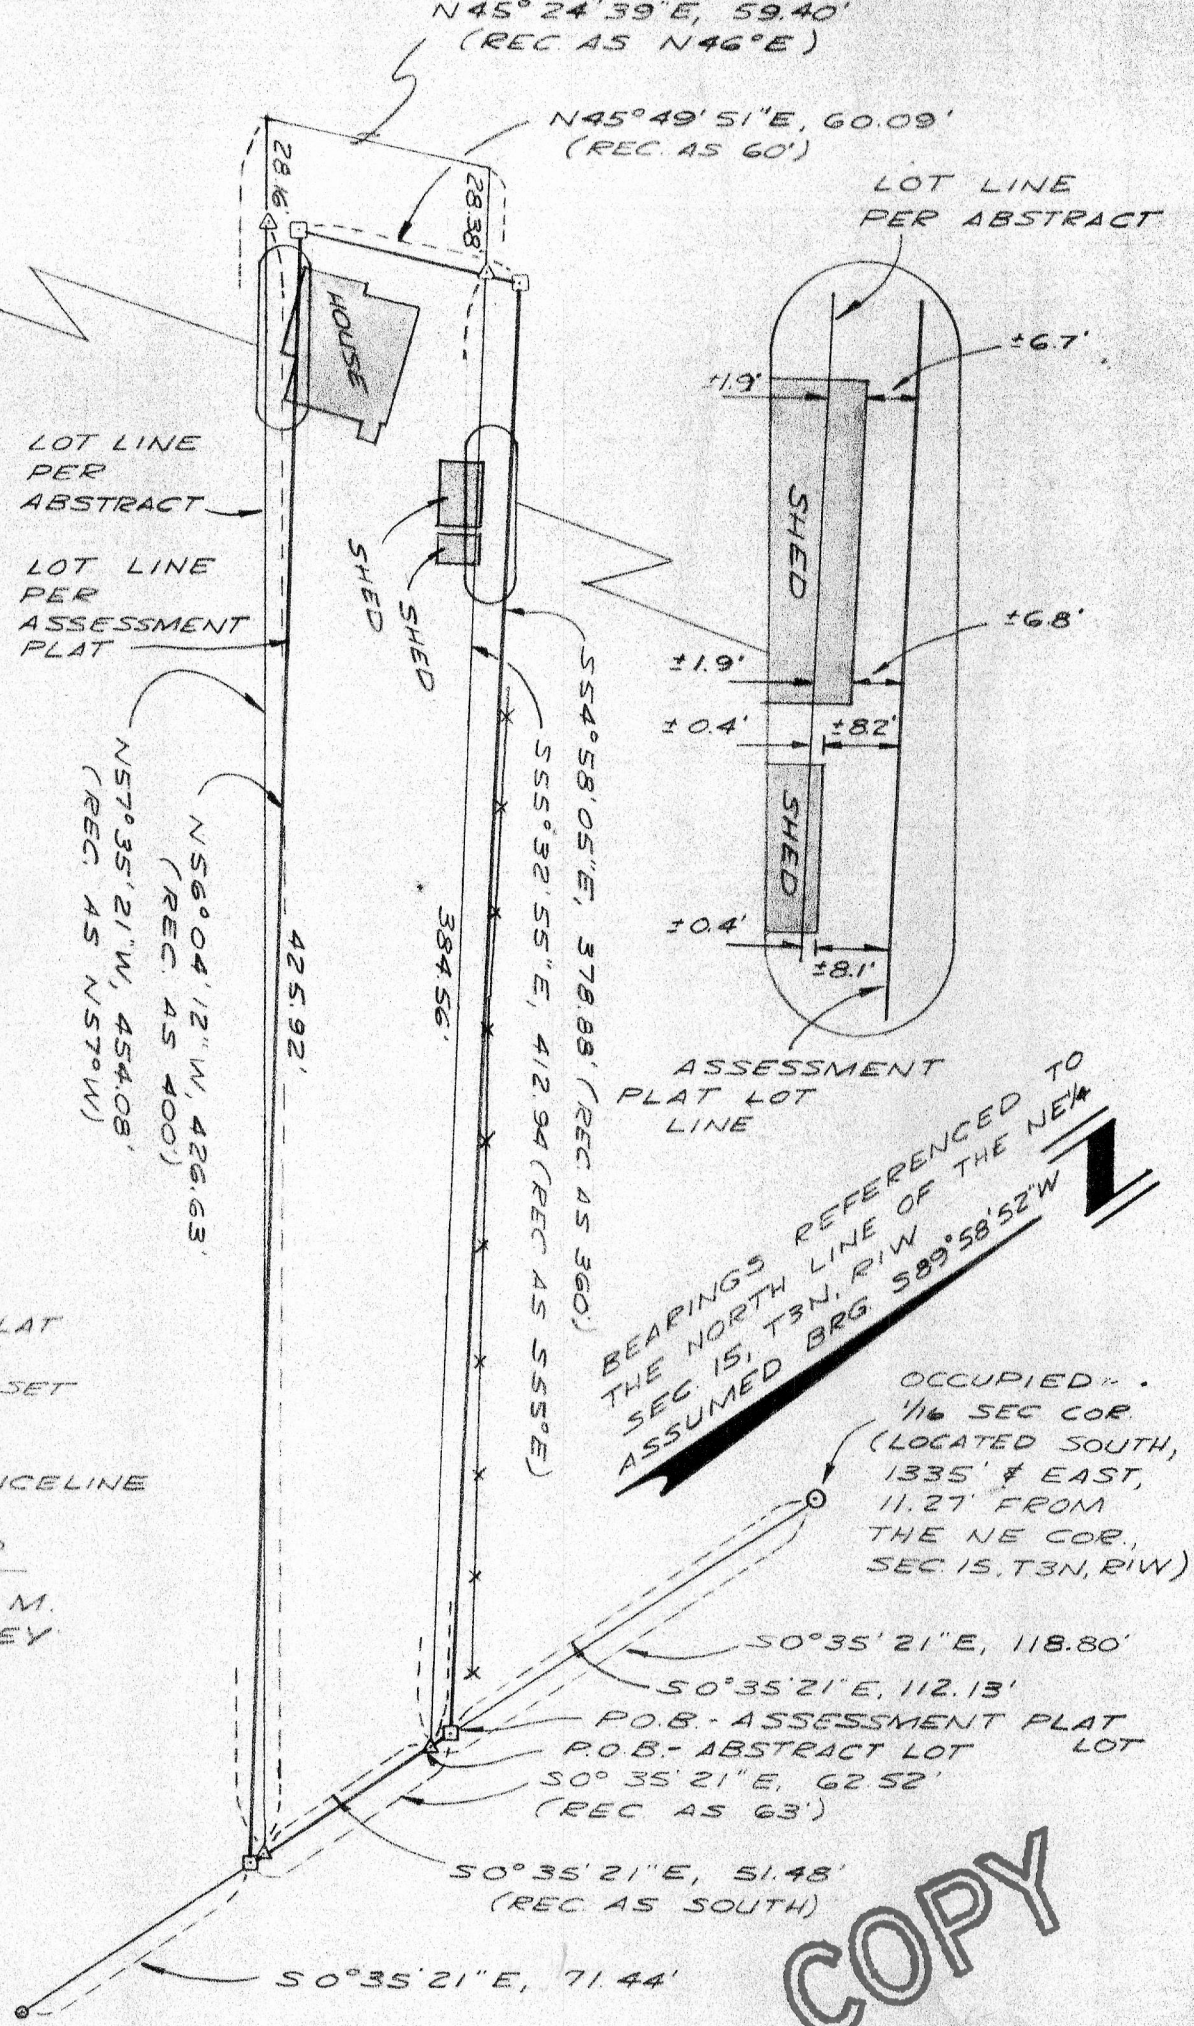 N45°24'39"E, 59.40'
(REC. AS N46°E)
N45°49'51"E, 60.09'
(REC. AS 60')
28.16'
28.38'
LOT LINE
PER ABSTRACT
HOUSE
±6.7'
±1.9'
SHED
LOT LINE
PER
ABSTRACT
LOT LINE
PER
ASSESSMENT
PLAT
SHED
SHED
±6.8'
±1.9'
±0.4'
±8.2'
SHED
±0.4'
±8.1'
ASSESSMENT
PLAT LOT
LINE
S54°58'05"E, 378.88' (REC AS 360')
S55°32'55"E, 412.94 (REC AS S55°E)
384.56'
425.92'
N56°04'12"W, 426.63'
(REC. AS 400')
N57°35'21"W, 454.08'
(REC. AS N57°W)
BEARINGS REFERENCED TO
THE NORTH LINE OF THE NE¼
SEC. 15, T3N, R1W
ASSUMED BRG. S89°58'52"W
N
LAT
SET
NCELINE
M.
EY
OCCUPIED
1/16 SEC COR.
(LOCATED SOUTH,
1335' & EAST,
11.27' FROM
THE NE COR.,
SEC. 15, T3N, R1W)
S0°35'21"E, 118.80'
S0°35'21"E, 112.13'
P.O.B. - ASSESSMENT PLAT
LOT
P.O.B. - ABSTRACT LOT
S0°35'21"E, 62.52'
(REC AS 63')
S0°35'21"E, 51.48'
(REC. AS SOUTH)
S0°35'21"E, 71.44'
COPY